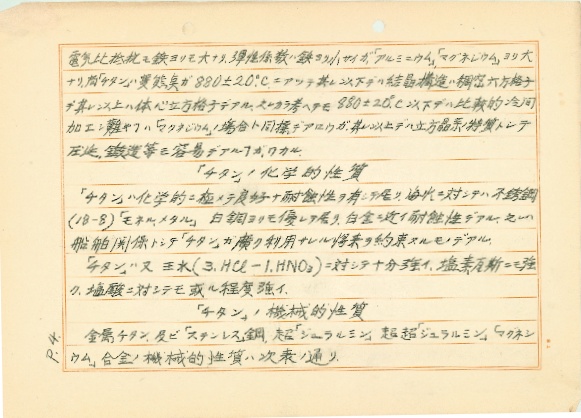 電気比抵抗モ鉄ヨリモ大ナリ、弾性係数ハ鉄ヨリ小サイガ、「アルミニウム」、「マグネジウム」ヨリ大
ナリ、尚「チタン」ハ変態点ガ880±20°C.ニアッテ其レ以下デハ結晶構造ハ稠密六方格子
デ其レ以上ハ体心立方格子デアル、スレカラ考ヘテモ880±20°C以下デハ比較的冷間
加工シ難ヤナハ「マグネジウム」ノ場合ト同様デアロウガ、其レ以上デハ立方晶系ノ特質トシテ
圧延、鍛造等モ容易デアル事ガワカル.
「チタン」ノ化学的性質
「チタン」ハ化学的ニ極メテ良好ナ耐蝕性ヲ有シテ居リ、海水ニ対シテハ不銹鋼
(18-8)「モネルメタル」白銅ヨリモ優レテ居リ、白金ニ近イ耐蝕性デアル、之レハ
船舶関係トシテ「チタン」ガ廣ク利用サレル将来ヲ約束スルモノデアル.
「チタン」ハ又王水(3.HCl-1.HNO₃)ニ対シテ十分強イ、塩素瓦斯ニモ強
ク、塩酸ニ対シテモ或ル程度強イ.
「チタン」ノ機械的性質
金属チタン、及ビ「ステンレス」鋼、超「ジュラルミン」、超超「ジュラルミン」、「マグネシ
ウム」合金ノ機械的性質ハ次表ノ通リ.
P.4.